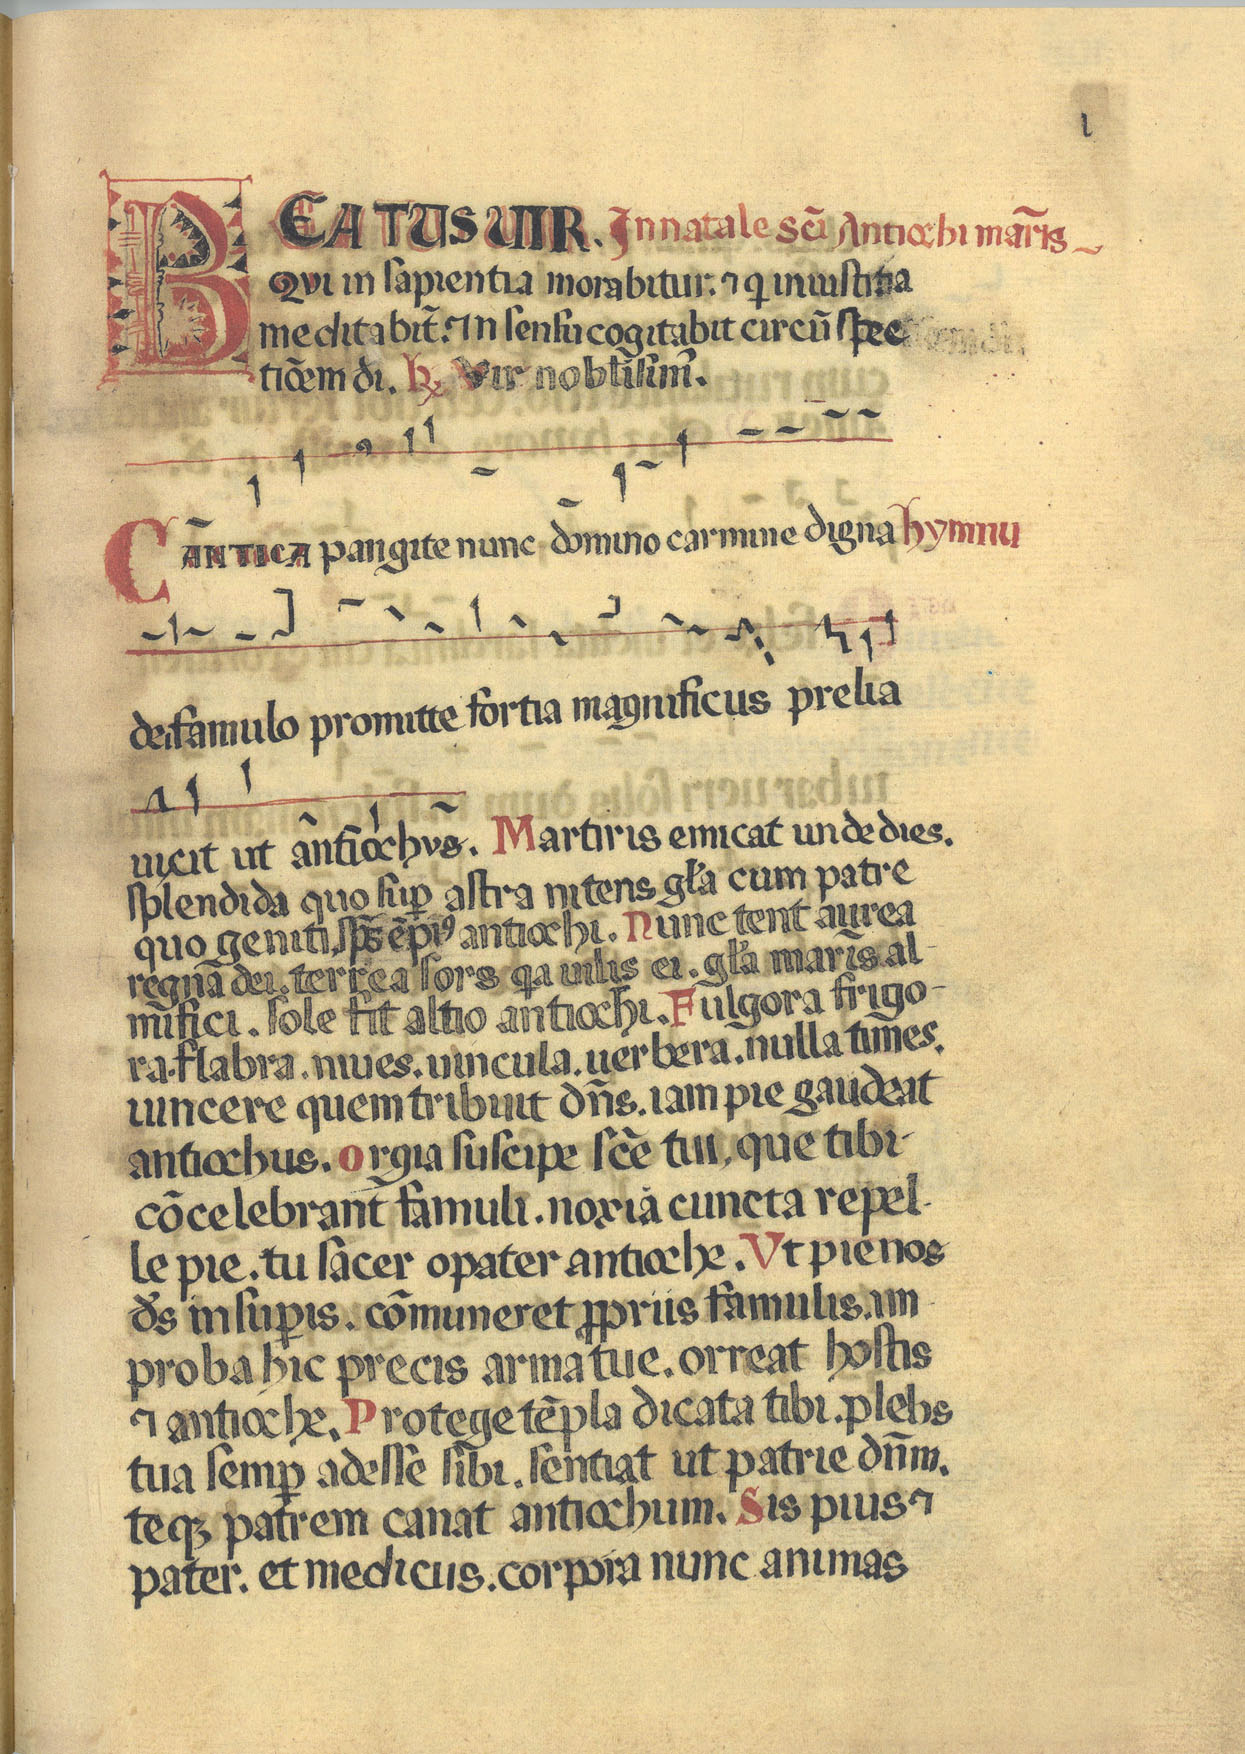 1
BEATUS UIR. In natale sc̄i Antiochi mar̄is
Qui in sapientia morabitur. ⁊ q̇ in iustitia
meditabit̄. ⁊ In sensu cogitabit circū spec
tiōem d̄i. ℞ Vir nobl̄isim̄.
CANTICA pangite nunc dōmino carmine digna hymnu
dei famulo promitte fortia magnificus prelia
uicit ut āntiochus. Martiris emicat unde dies.
splendida quo sup̄ astra nitens gl̄a cum patre
quo geniti, sp̄s ēpi⁹ antiochi. Nunc tent aurea
regna dei. terrea sors qa uilis ei. gl̄a mar̄is al-
mifici. sole fit altio antiochi. Fulgora frigo-
ra. flabra. niues. uincula. uerbera. nulla times.
uincere quem tribuit dn̄s. iam pie gaudeat
antiochus. Orgia suscipe sc̄e tui, que tibi-
cōcelebrant famuli. noxia cuncta repel-
le pie. tu sacer o pater antioche. Ut pie nos
d̄s in sup̄is. cōmuneret ꝓpriis famulis. im
proba hic precis arma tue. orreat hostis
⁊ antioche. Protege tēpla dicata tibi. plebs
tua semp̄ adesse sibi. sentiat ut patrie dn̄m.
teqꝫ patrem canat antiochum. Sis pius ⁊
pater. et medicus. corpora nunc animas